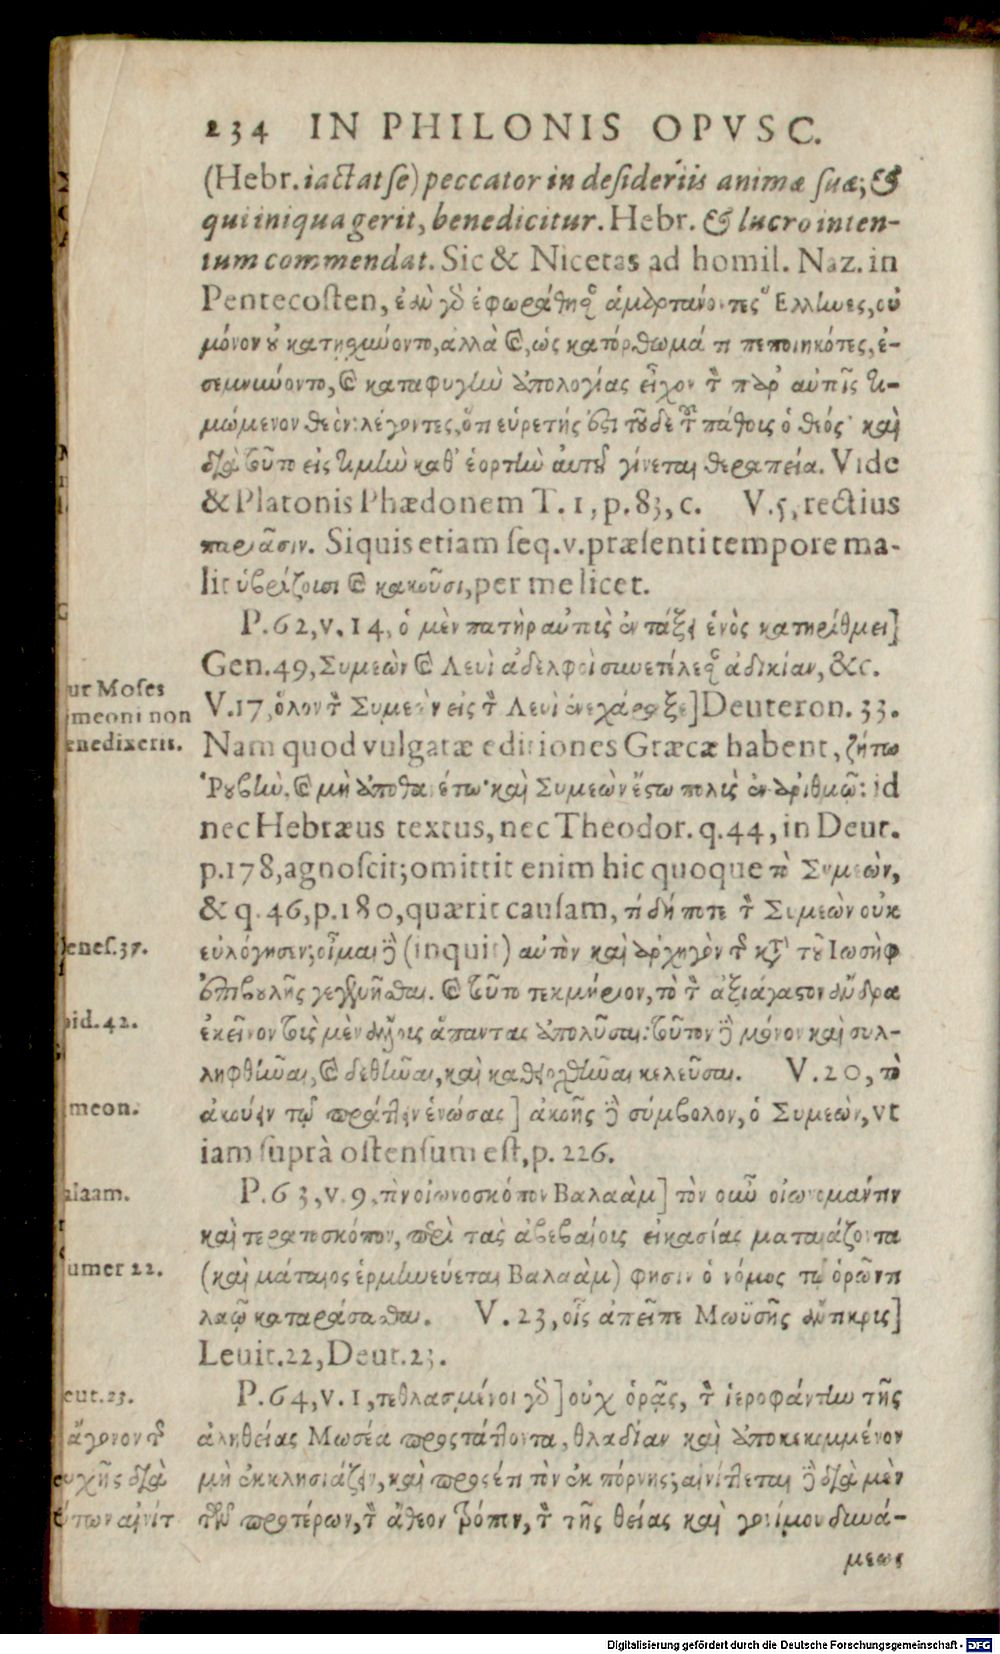 234 IN PHILONIS OPVSC.
(Hebr. iactat se) peccator in desideriis animæ suæ; &
qui iniqua gerit, benedicitur. Hebr. & lucro inten-
tum commendat. Sic & Nicetas ad homil. Naz. in
Pentecosten, ἐφωράθησαν ἁμαρτάνοντες Ἕλληνες, οὐ
μόνον οὐ κατῃσχύνοντο, ἀλλὰ καὶ, ὡς κατόρθωμά τι πεποιηκότες, ἐ-
σεμνύνοντο, καὶ καταφυγὴν ἀπολογίας εἶχον τὸν παρ' αὐτοῖς τι-
μώμενον θεὸν· λέγοντες, ὅτι εὑρετής ἐστι τοῦδε τοῦ πάθους ὁ θεός· καὶ
διὰ τοῦτο εἰς τιμὴν καθ' ἑορτὴν αὐτοῦ γίνεται θεραπεία. Vide
& Platonis Phædonem T. 1, p. 83, c. V. 5, rectius
παρεᾶσιν. Siquis etiam seq. v. præsenti tempore ma-
lit ὑβρίζουσι καὶ κακοῦσι, per me licet.
P. 62, v. 14, ὁ μὲν πατὴρ αὐτοῖς ἐν τάξει ἑνὸς κατηρίθμει]
Gen. 49, Συμεὼν καὶ Λευὶ ἀδελφοὶ συνετέλεσαν ἀδικίαν, &c.
ur Moses
meoni non
enedixerit.
V. 17, ὅλον τὸν Συμεὼν εἰς τὸν Λευὶ ἐνεχάραξε] Deuteron. 33.
Nam quod vulgatæ editiones Græcæ habent, ζήτω
Ῥουβὴν, καὶ μὴ ἀποθανέτω· καὶ Συμεὼν ἔστω πολὺς ἐν ἀριθμῷ: id
nec Hebræus textus, nec Theodor. q. 44, in Deut.
p. 178, agnoscit; omittit enim hic quoque τὸ Συμεών,
& q. 46, p. 180, quærit causam, τί δή ποτε τὸν Συμεὼν οὐκ
enes. 37.
εὐλόγησεν; οἶμαι δὲ (inquit) αὐτὸν καὶ ἀρχηγὸν τῆς κατὰ τοῦ Ἰωσὴφ
ἐπιβουλῆς γεγενῆσθαι. καὶ τοῦτο τεκμήριον, τὸ τὸν ἀξιάγαστον ἄνδρα
id. 42.
ἐκεῖνον τοὺς μὲν ἄλλους ἅπαντας ἀπολῦσαι: τοῦτον δὲ μόνον καὶ συλ-
ληφθῆναι, καὶ δεθῆναι, καὶ καθειρχθῆναι κελεῦσαι. V. 20, τὸ
meon.
ἀκούειν τῷ πράττειν ἑνώσας] ἀκοῆς δὲ σύμβολον, ὁ Συμεών, vt
iam suprà ostensum est, p. 226.
alaam.
P. 63, v. 9, τὸν οἰωνοσκόπον Βαλαὰμ] τὸν οὖν οἰωνομάντιν
καὶ τερατοσκόπον, περὶ τὰς ἀβεβαίους εἰκασίας ματαιάζοντα
umer 22.
(καὶ μάταιος ἑρμηνεύεται Βαλαὰμ) φησὶν ὁ νόμος τῷ ὁρῶντι
λαῷ καταράσασθαι. V. 23, οἷς ἀπεῖπε Μωϋσῆς ἄντικρυς]
Leuit. 22, Deut. 23.
eut. 23.
P. 64, v. 1, τεθλασμένοι γὰρ] οὐχ ὁρᾷς, τὸν ἱεροφάντην τῆς
ἄγονον τῆς
ἀληθείας Μωσέα προστάττοντα, θλαδίαν καὶ ἀποκεκομμένον
ψυχῆς διὰ
μὴ ἐκκλησιάζειν, καὶ προσέτι τὸν ἐκ πόρνης; αἰνίττεται δὲ διὰ μὲν
τύπων αἰνίτ
τῶν προτέρων, τὸν ἄθεον τρόπον, τὸν τῆς θείας καὶ γονίμου δυνά-
μεως
Digitalisierung gefördert durch die Deutsche Forschungsgemeinschaft - DFG